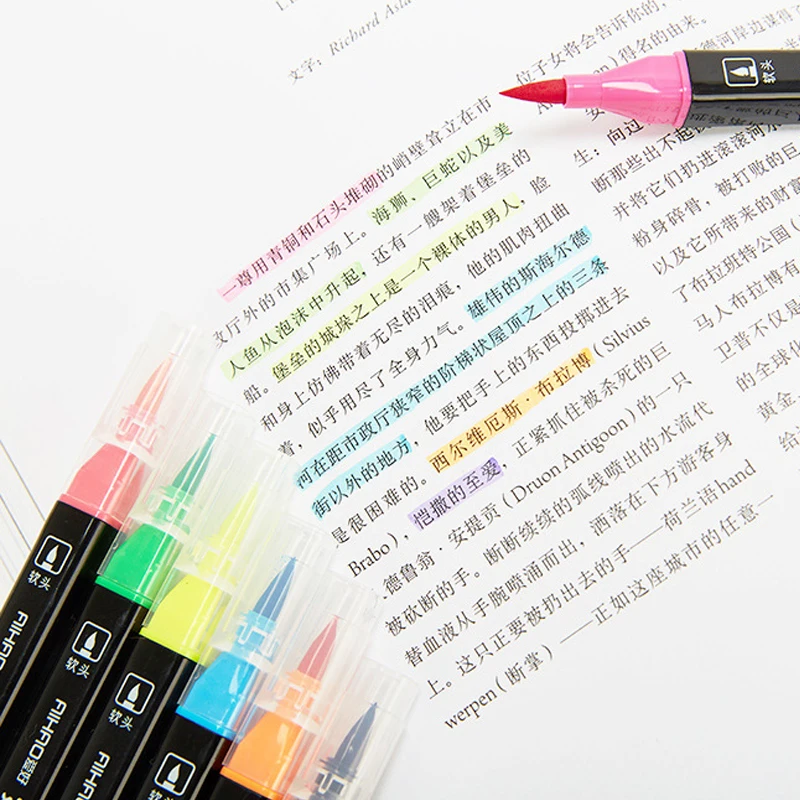 文字：Richard Asla
一尊用青铜和石头堆砌的峭壁耸立在市
政厅外的市集广场上。海狮、巨蛇以及美
人鱼从泡沫中升起，还有一艘架着堡垒的
船。堡垒的城垛之上是一个裸体的男人，脸
和身上仿佛带着无尽的泪痕，他的肌肉扭曲
着，似乎用尽了全身力气。雄伟的斯海尔德
河在距市政厅狭窄的阶梯状屋顶之上的三条
街以外的地方，他要把手上的东西投掷进去
是很困难的。西尔维厄斯·布拉博（Silvius
Brabo），恺撒的至爱，正紧抓住被杀死的巨
德鲁翁·安提贡（Druon Antigoon）的一只
被砍断的手。断断续续的弧线喷出的水流代
替血液从手腕喷涌而出，洒落在下方游客身
上。这只正要被扔出去的手——荷兰语hand
werpen（断掌）——正如这座城市的任意一
位子女将会告诉你的，
得名的由来。
德河岸边谋得了
生：向过
断那些出不起
并将它们扔进滚滚河水
粉身碎骨，被打败的巨
以及它所带来的财富
了布拉班特公国（
马人布拉博有
卫普不仅是
的全球化
黄金、
给
软头
软头
AIHAO
软头
AIHAO爱好
软头
AIHAO
软头